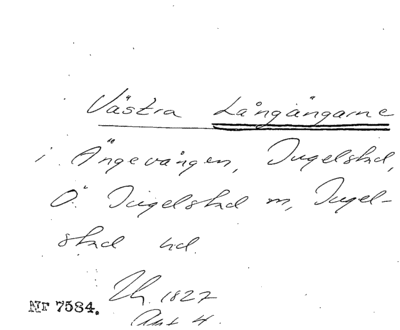 Västra Långängarne
i Ängevången, Ingelstad,
Ö. Ingelstad sn, Ingel-
stad hd.
1827
NF 7584. Akt 4.